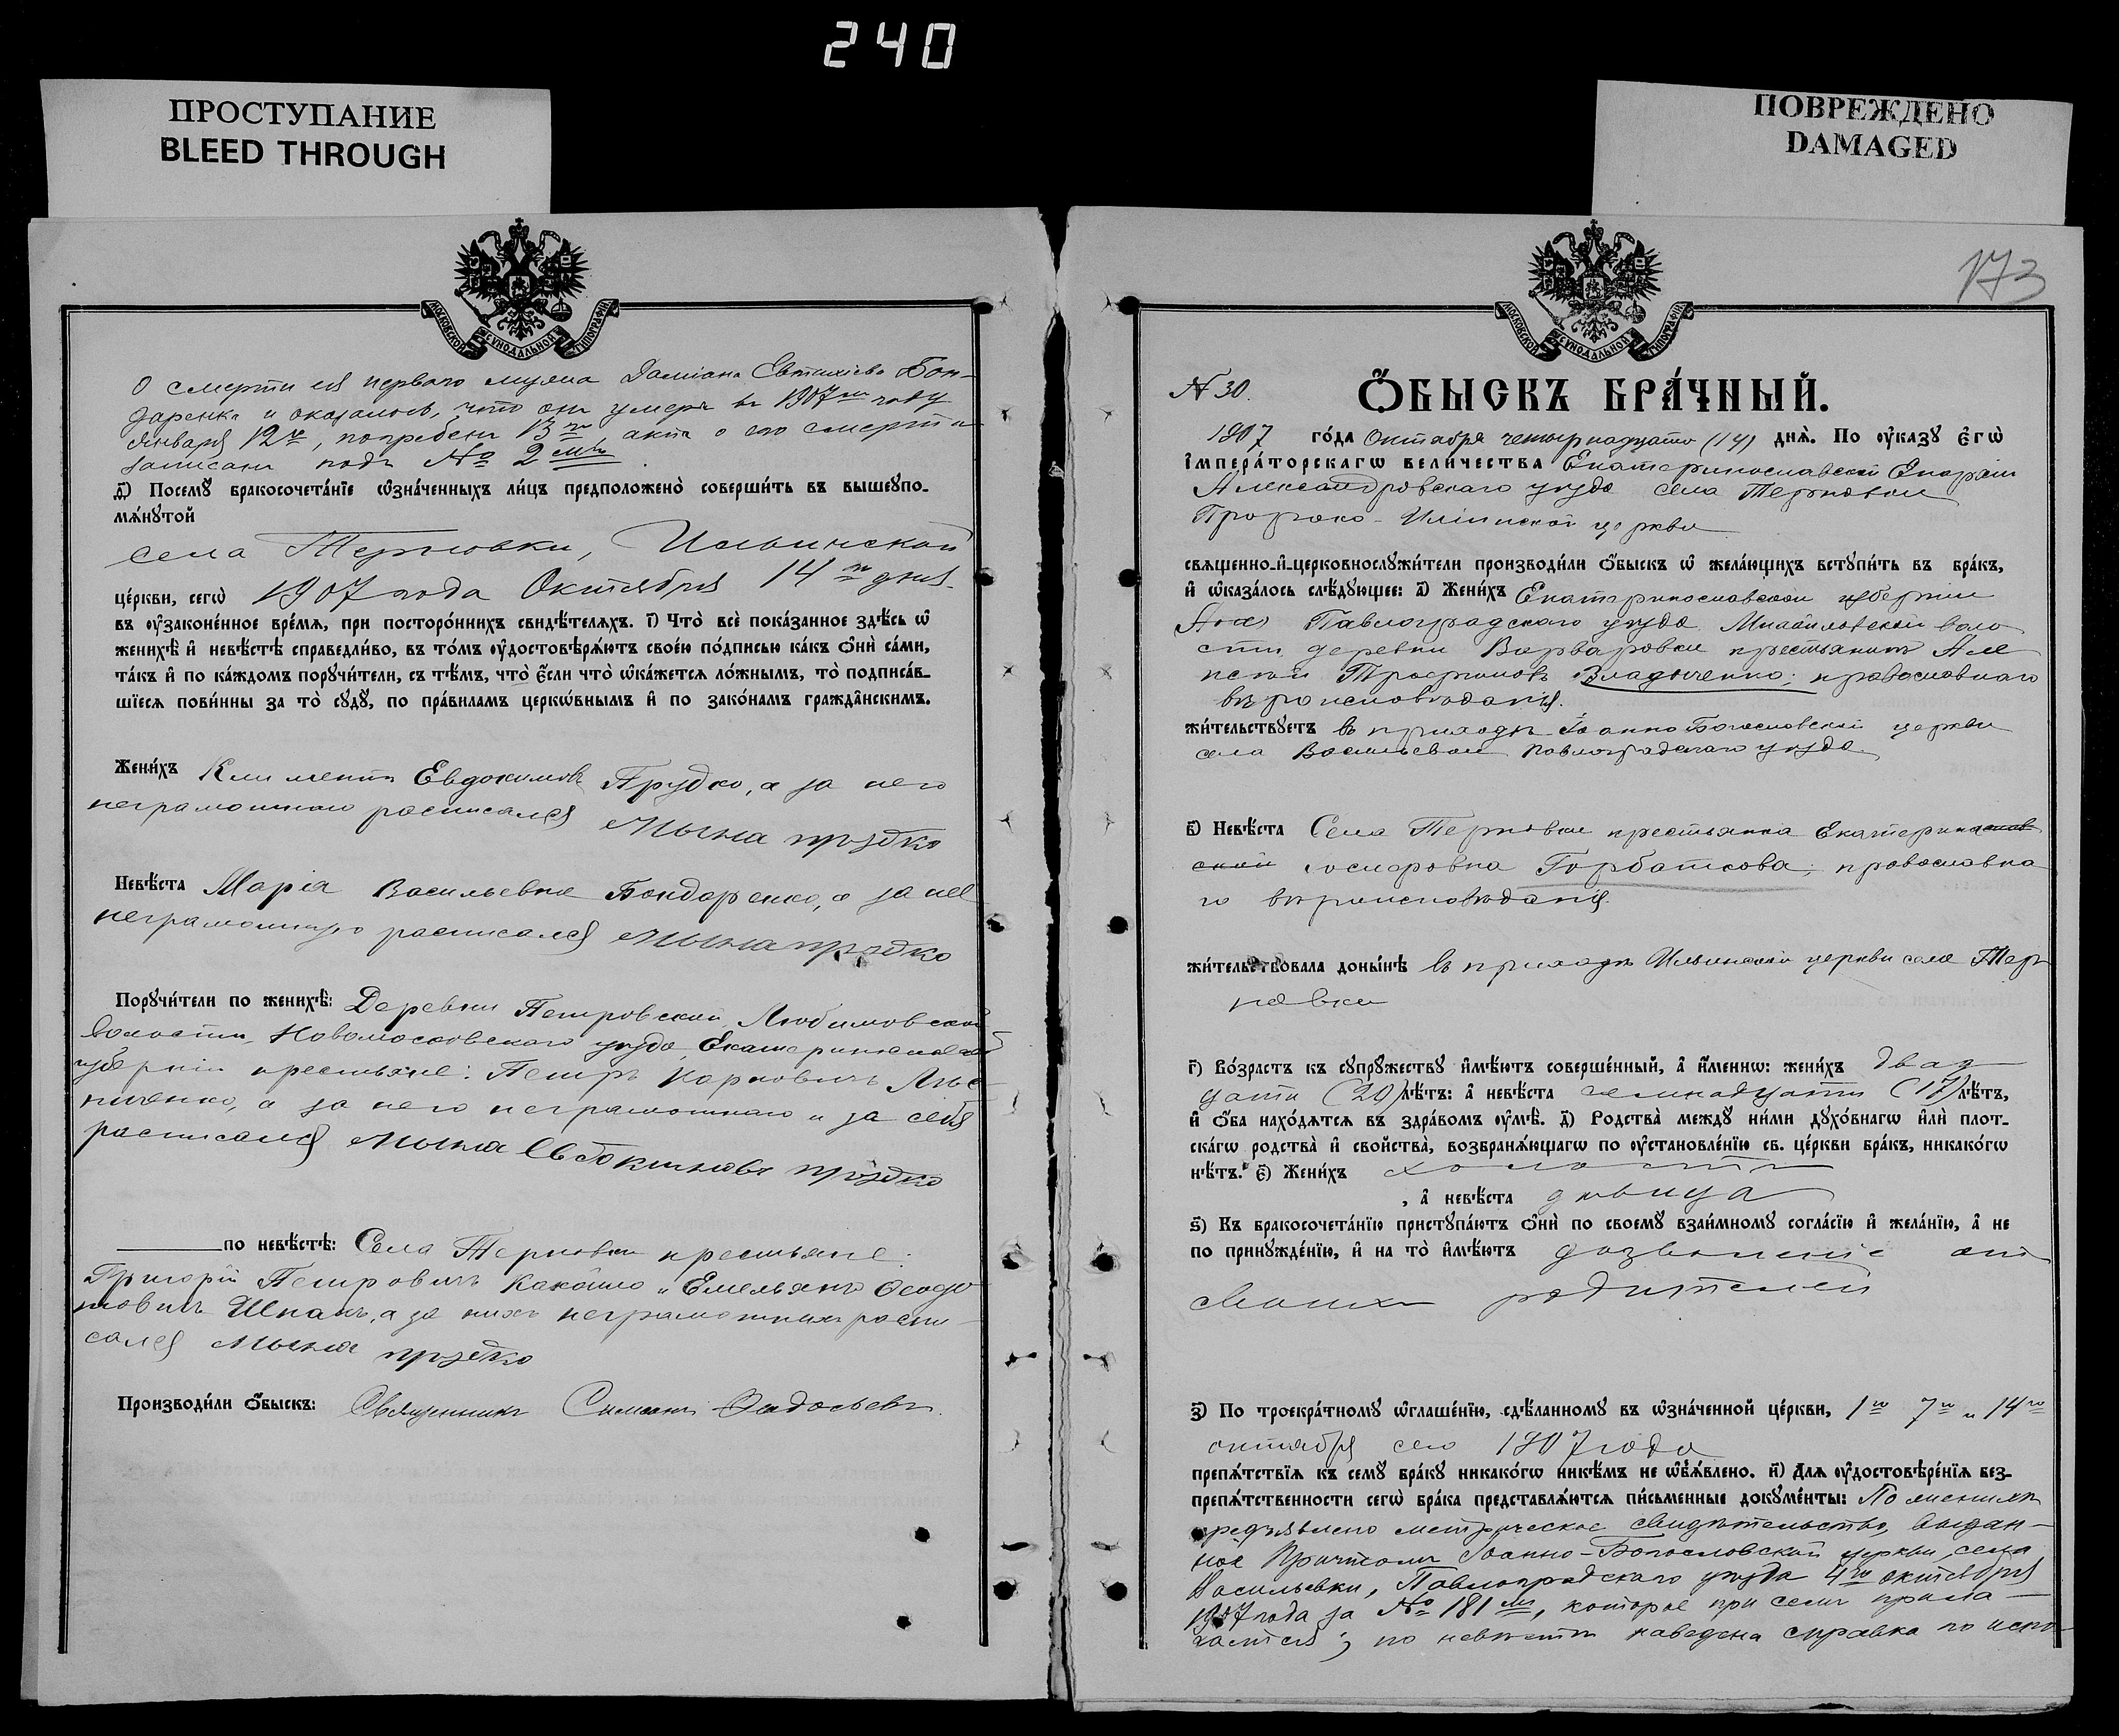 240
ПРОСТУПАНИЕ
BLEED THROUGH
ПОВРЕЖДЕНО
DAMAGED
МОСКОВСКОЙ СУНОДАЛЬНОЙ ТИПОГРАФІИ
О смерти ея перваго мужа Даміана Евтихіева Бон-
даренка и оказалось, что онъ умеръ въ 1907мъ году
Января 12го, погребенъ 13го, актъ о его смерти
записанъ подъ № 2мъ.
д҃) Посемꙋ бракосочета́нїе ѡ҆зна́ченныхъ ли́цъ предположено̀ соверши́ть въ вышеꙋпо-
мѧ́нꙋтой
села Терновки, Ильинской
це́ркви, сегѡ̀ 1907 года Октября 14го дня
въ ᲂу҆законе́нное вре́мѧ, при посторо́ннихъ свидѣ́телѧхъ. і҃) Что̀ всѐ пока́занное здѣ́сь ѡ҆
женихѣ̀ и҆ невѣ́стѣ справедли́во, въ то́мъ ᲂу҆достовѣрѧ́ютъ свое́ю по́дписью ка́къ ѻ҆нѝ са́ми,
та́къ и҆ по ка́ждомъ порꙋчи́тели, съ тѣ́мъ, что̀ є҆́сли что̀ ѡ҆ка́жетсѧ ло́жнымъ, то̀ подписа́в-
шїесѧ пови́нны за то̀ сꙋдꙋ̀, по пра́виламъ церкѡ́внымъ и҆ по зако́намъ гражда̂нскимъ.
Жени́хъ Климентъ Евдокимовъ Прудко, а за него
неграмотнаго расписался Мына прудко
Невѣ́ста Марія Васильевна Бондаренко, а за нее
неграмотную расписался Мына прудко
Порꙋчи́тели по женихѣ̀: Деревни Петровской, Любимовской
волости, Новомосковскаго уѣзда Екатеринославской
губерніи крестьяне: Петръ Карповичъ
а за него неграмотнаго и за себя
расписался Мына Евдокимовъ прудко
по невѣ́стѣ: Села Терновки крестьяне:
Григорій Петровичъ и Емельянъ Ѳеодо
товичъ а за нихъ неграмотныхъ распи-
сался Мына прудко
Производи́ли ѻ҆́быскъ: Священникъ Симеонъ
173
МОСКОВСКОЙ СУНОДАЛЬНОЙ ТИПОГРАФІИ
№ 30. Ѻ҆́БЫСКЪ БРА́ЧНЫЙ.
1907 го́да Октября четырнадцато (14) днѧ̀. По ᲂу҆ка́зꙋ є҆гѡ̀
і҆мпера́торскагѡ вели́чества Екатеринославской Епархіи
Александровскаго уѣзда села Терновки
Пророко-Иліинской церкви
свѧщенно-и҆-церковнослꙋжи́тели производи́ли ѻ҆́быскъ ѡ҆ жела́ющихъ встꙋпи́ть въ бра́къ,
и҆ ѡ҆каза́лось слѣ́дꙋющее: а҃) Жени́хъ Екатеринославской губерніи
Павлоградскаго уѣзда Михайловской воло
сти деревни Варваровки крестьянинъ Але
ксѣй Трофимовъ Владыченко; православнаго
вѣроисповѣданія.
жи́тельствꙋетъ въ приходѣ Іоанно Богословской церкви
села Васильевки Павлоградскаго уѣзда
в҃) Невѣ́ста Села Терновки крестьянка Екатерина
Горбаткова; православна
го вѣроисповѣданія.
жи́тельствовала доны́нѣ въ приходѣ Ильинской церкви села Тер
новки
г҃) Во́зрастъ къ сꙋпрꙋ́жествꙋ и҆мѣ́ютъ соверше́нный, а҆ и҆́меннѡ: жени́хъ двад
цати (20) лѣ́тъ: а҆ невѣ́ста семнадцати (17) лѣ́тъ,
и҆ ѻ҆́ба нахо́дѧтсѧ въ здра́вомъ ᲂу҆мѣ̀. д҃) Родства̀ междꙋ ни́ми дꙋхо́внагѡ и҆лѝ плот-
ска́гѡ родства̀ и҆ свойства̀, возбранѧ́ющагѡ по ᲂу҆становле́нїю св. це́ркви бра́къ, никако́гѡ
нѣ́тъ. є҃) Жени́хъ холостъ
, а҆ невѣ́ста дѣвица
ѕ҃) Къ бракосочета́нїю пристꙋпа́ютъ ѻ҆нѝ по своемꙋ̀ взаи́мномꙋ согла́сїю и҆ жела́нїю, а҆ не
по принꙋжде́нїю, и҆ на то̀ и҆мѣ́ютъ дозволеніе отъ
своихъ родителей
з҃) По троекра́тномꙋ ѡ҆глаше́нїю, сдѣ́ланномꙋ въ ѡ҆зна́ченной це́ркви, 1го 7го и 14го
октября сего 1907 года
препѧ́тствїѧ къ семꙋ̀ бра́кꙋ никако́гѡ никѣ́мъ не ѡ҆б̾ѧ́влено. и҃) Длѧ ᲂу҆достовѣре́нїѧ без-
препѧ́тственности сегѡ̀ бра́ка представлѧ́ютсѧ пи́сьменные докꙋме́нты: По женихѣ
предъявлено метрическое свидѣтельство, выдан-
ное Причтомъ Іоанно-Богословской церкви, села
Васильевки, Павлоградскаго уѣзда 4го октября
1907 года за № 181мъ, которое при семъ прила-
гается; по невѣстѣ наведена справка по испо-